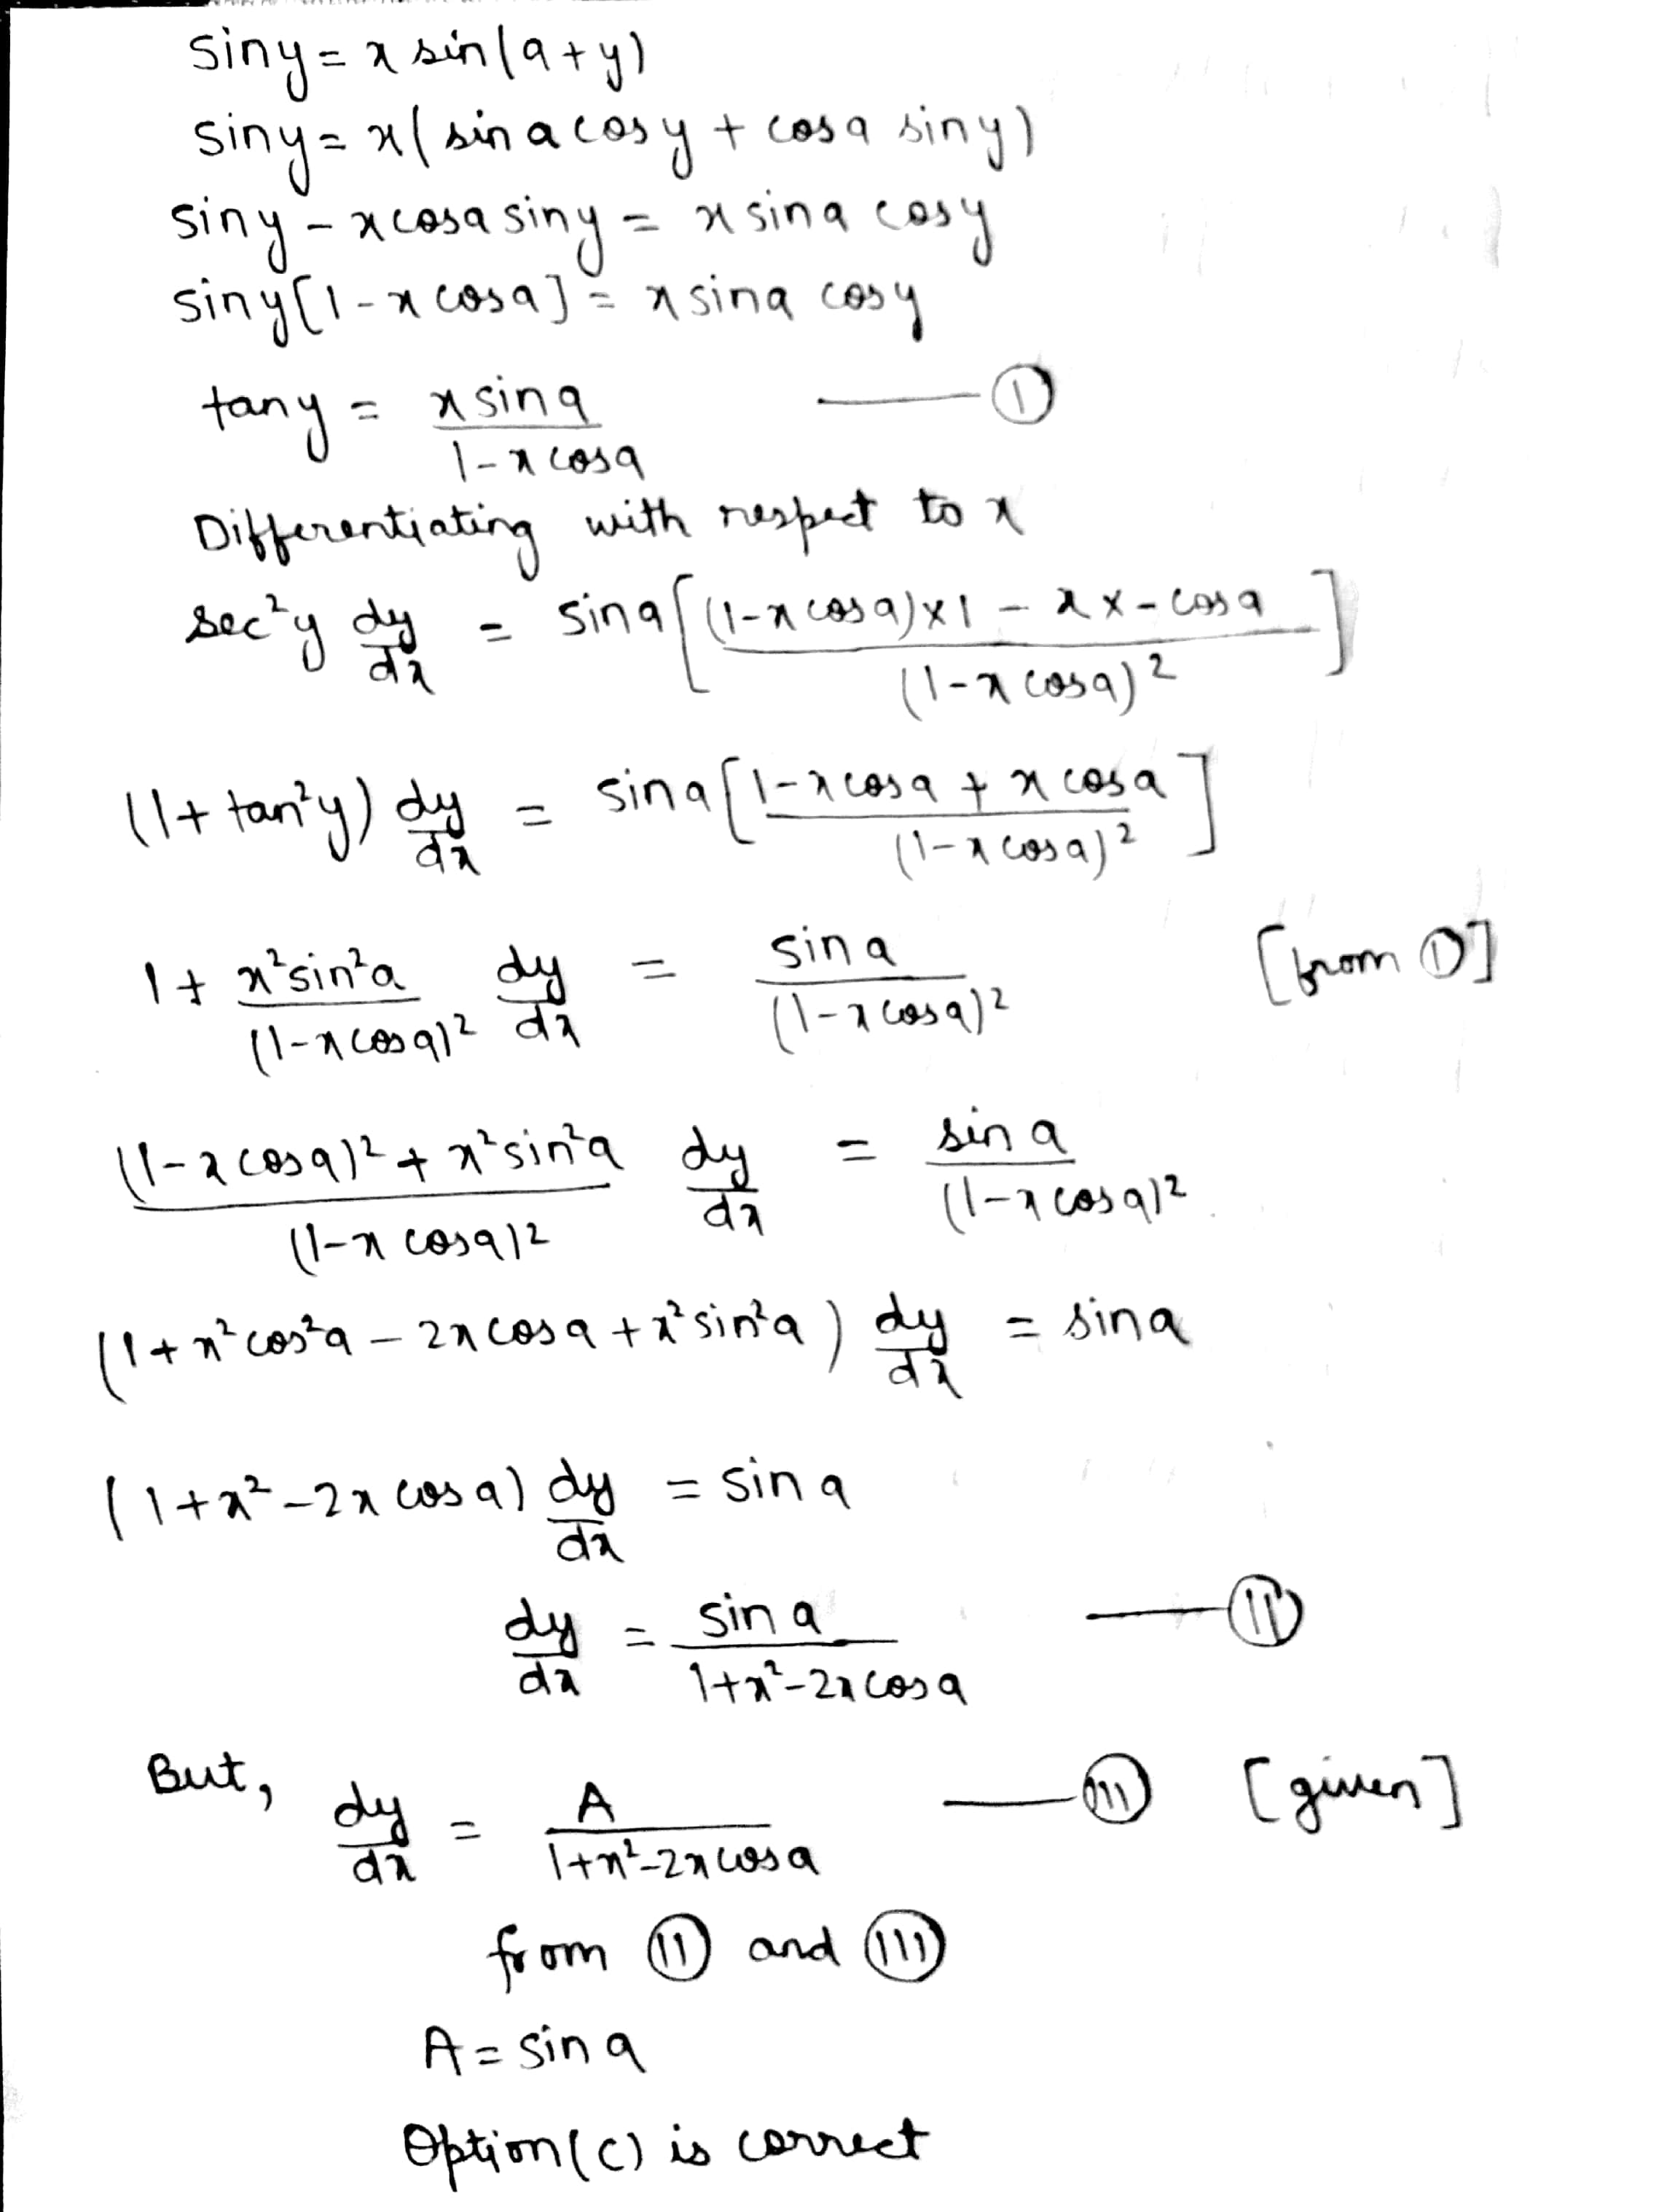 sin y = x sin(a+y)
sin y = x(sin a cos y + cos a sin y)
sin y - x cos a sin y = x sin a cos y
sin y[1 - x cos a] = x sin a cos y
tan y = x sin a / 1 - x cos a — (I)
Differentiating with respect to x
sec²y dy/dx = sin a [(1 - x cos a)×1 - x×-cos a / (1 - x cos a)²]
(1 + tan²y) dy/dx = sin a [1 - x cos a + x cos a / (1 - x cos a)²]
1 + x² sin²a / (1 - x cos a)² dy/dx = sin a / (1 - x cos a)² [from (I)]
(1 - x cos a)² + x² sin²a / (1 - x cos a)² dy/dx = sin a / (1 - x cos a)²
(1 + x² cos²a - 2x cos a + x² sin²a) dy/dx = sin a
(1 + x² - 2x cos a) dy/dx = sin a
dy/dx = sin a / 1 + x² - 2x cos a — (II)
But, dy/dx = A / 1 + x² - 2x cos a — (III) [given]
from (II) and (III)
A = sin a
Option (C) is correct